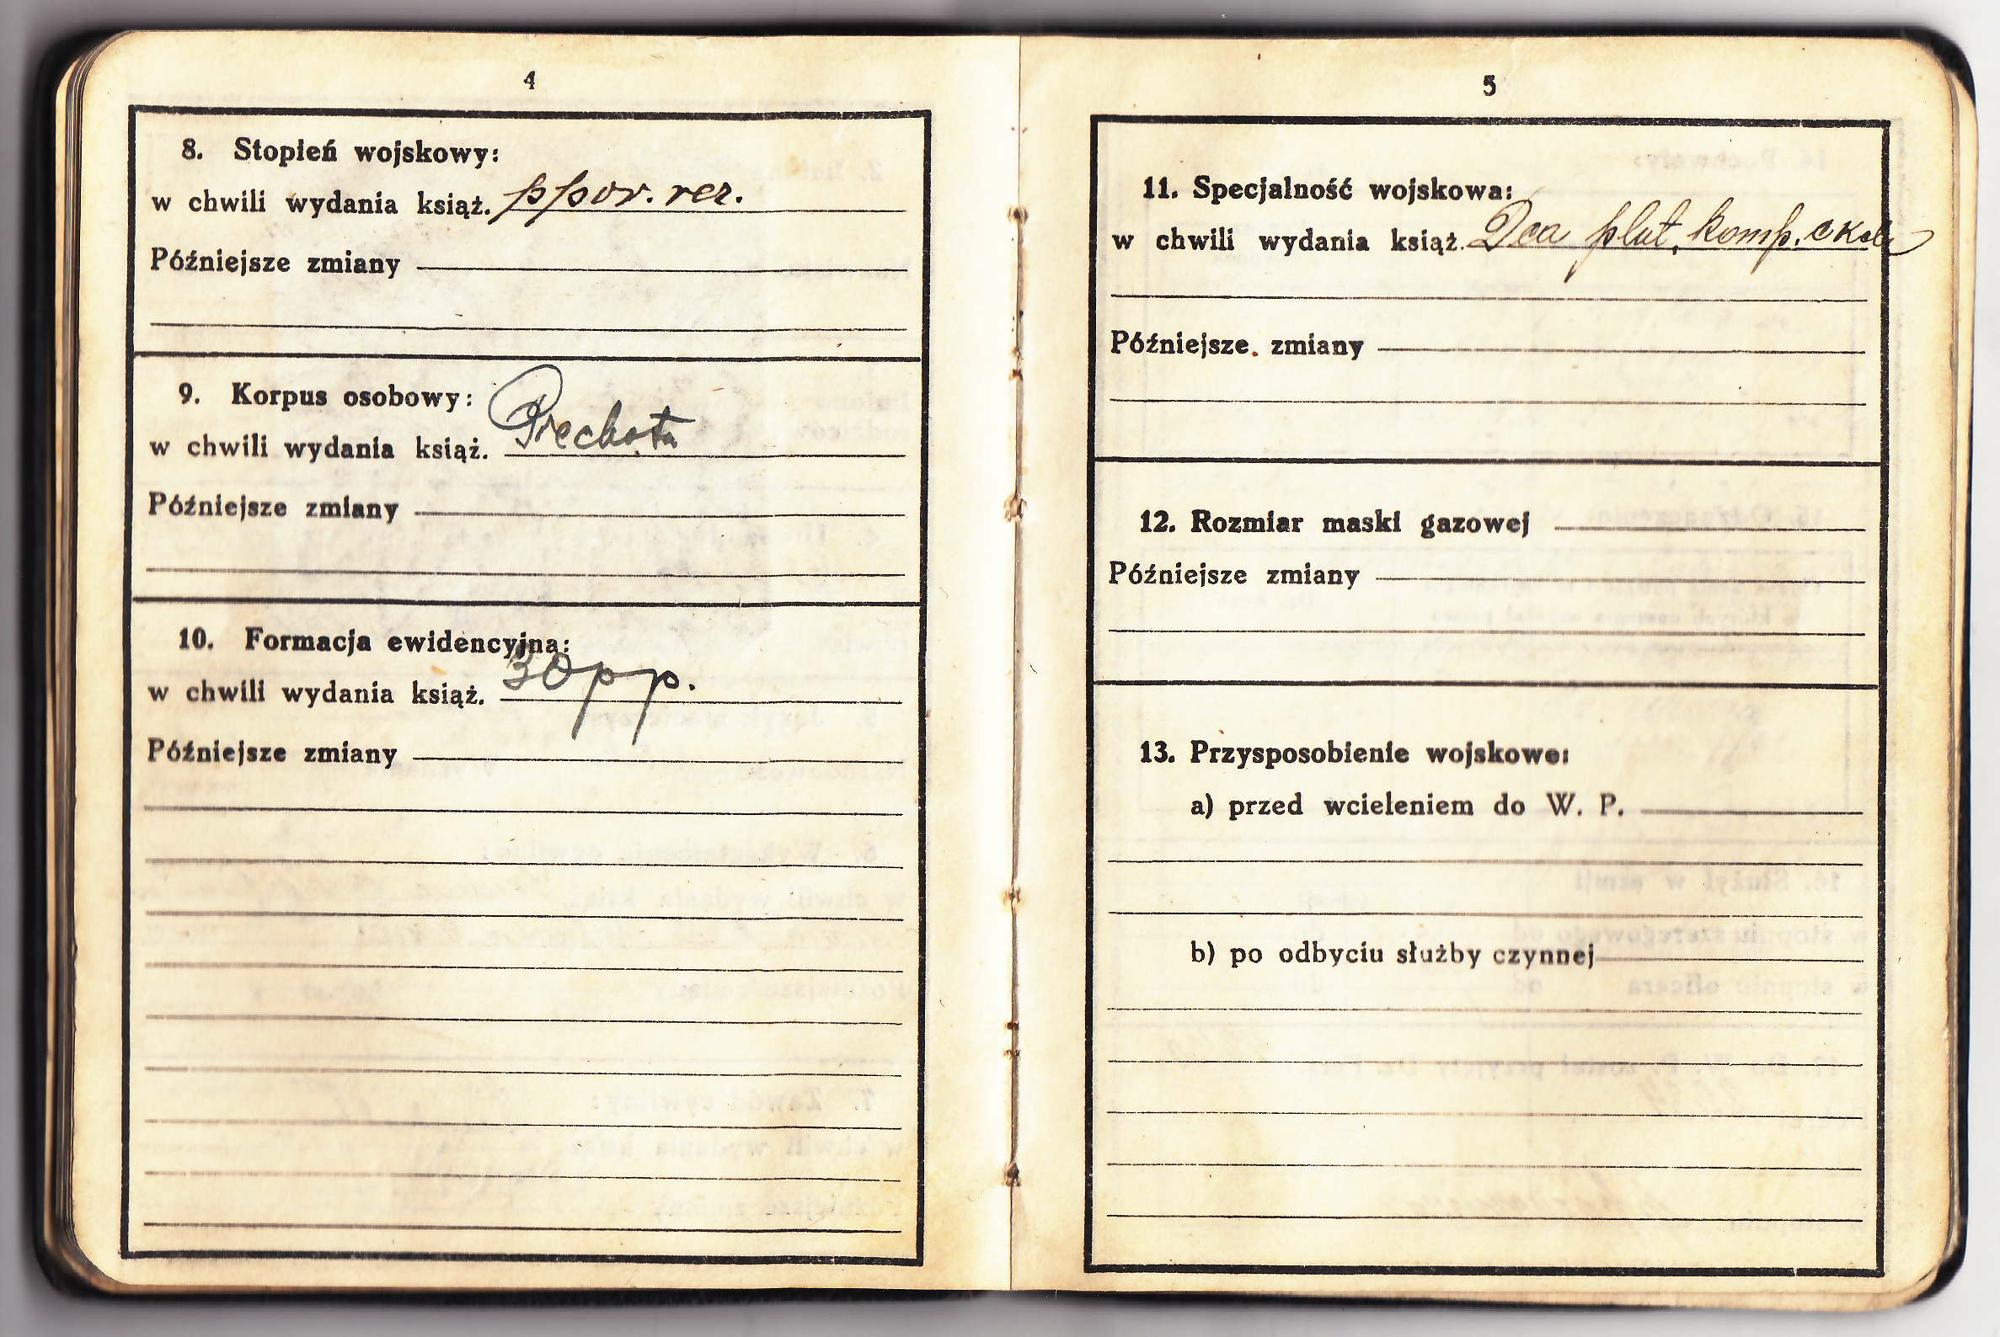 4
8. Stopień wojskowy:
w chwili wydania książ. ppor. rez.
Późniejsze zmiany
9. Korpus osobowy:
w chwili wydania książ. Piechota
Późniejsze zmiany
10. Formacja ewidencyjna:
w chwili wydania książ. 30 pp.
Późniejsze zmiany
5
11. Specjalność wojskowa:
w chwili wydania książ. Dca plut. komp.
Późniejsze zmiany
12. Rozmiar maski gazowej
Późniejsze zmiany
13. Przysposobienie wojskowe:
a) przed wcieleniem do W. P.
b) po odbyciu służby czynnej